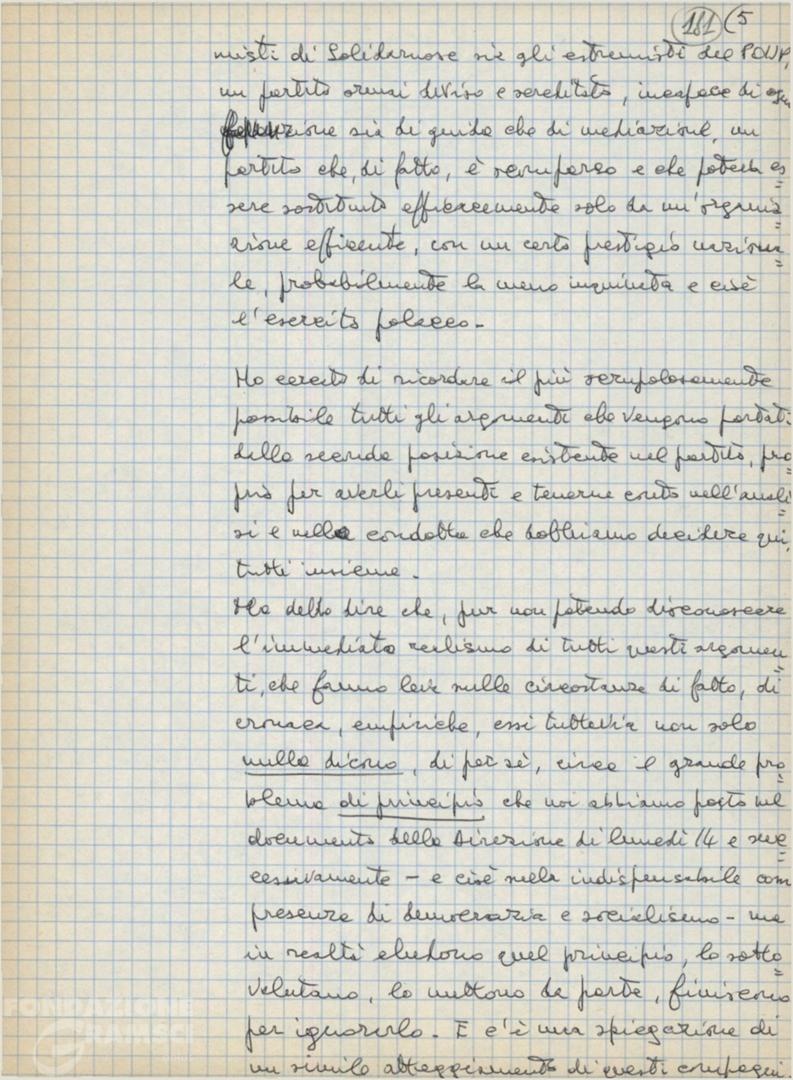 181 (5
misti di Solidarnosc sia gli estremisti del POUP,
un partito ormai diviso e screditato, incapace di ogni
funzione sia di guida che di mediazione, un
partito che, di fatto, è scomparso e che poteva es
sere sostituito efficacemente solo da un'organiz
azione efficiente, con un certo prestigio naziona
le, probabilmente la meno inquinata e cioè
l'esercito polacco.
Ho cercato di ricordare il più scrupolosamente
possibile tutti gli argomenti che vengono portati
dalla seconda posizione esistente nel partito, pro
prio per averli presenti e tenerne conto nell'anali
si e nella condotta che dobbiamo decidere qui,
tutti insieme.
Ma debbo dire che, pur non potendo disconoscere
l'immediato realismo di tutti questi argomen
ti, che fanno leva sulle circostanze di fatto, di
cronaca, empiriche, essi tuttavia non solo
nulla dicono, di per sè, circa il grande pro
blema di principio che noi abbiamo posto nel
documento della Direzione di lunedì 14 e suc
cessivamente - e cioè sulla indispensabile com
presenza di democrazia e socialismo - ma
in realtà eludono quel principio, lo sotto
valutano, lo mettono da parte, finiscono
per ignorarlo. E c'è una spiegazione di
un simile atteggiamento di questi compagni.
FONDAZIONE
GRAMSCI